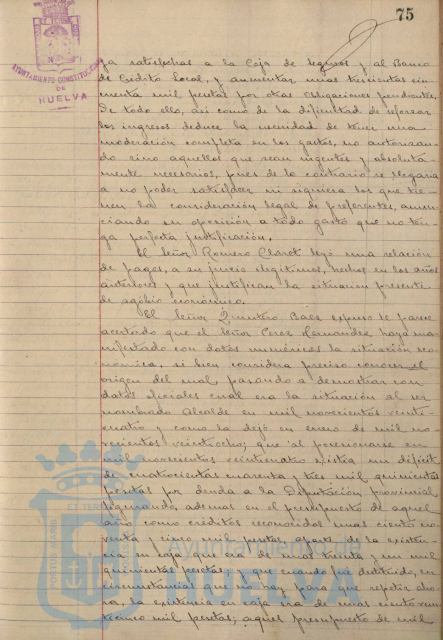 75
AYUNTAMIENTO CONSTITUCIONAL
DE
HUELVA
ga satisfechas a la Caja de Seguros y al Banco
de Crédito Local, y aumentar unas trescientas cin
cuenta mil pesetas por otras obligaciones pendientes.
De todo ello, así como de la dificultad de reforzar
los ingresos deduce la necesidad de tener una
moderación completa en los gastos, no autorizan
do sino aquellos que sean urgentes y absoluta
mente necesarios, pues de lo contrario se llegaria
a no poder satisfacer ni siquiera los que tie
nen la consideración legal de preferentes, anun
ciando su oposición a todo gasto que no ten
ga perfecta justificación.
El Señor Romero Claret leyó una relación
de pagos, a su juicio ilegítimos, hechos en los años
anteriores y que justifican la situación presente
de agobio económico.
El Señor Quintero Báez expuso le parece
acertado que el Señor Cerez Hernandez haya ma
nifestado con datos numéricos la situación eco
nómica, si bien considera preciso conocer el
origen del mal, pasando a demostrar con
datos oficiales cual era la situación al ser
nombrado Alcalde en mil novecientos veinti
cuatro y como la dejó en enero de mil no
vecientos veintiocho; que al posesionarse en
mil novecientos veinticuatro existia un déficit
de cuatrocientas cuarenta y tres mil quinientas
pesetas por deuda a la Diputación provincial
figurando ademas en el presupuesto de aquel
año como créditos reconocidos unas ciento no
venta y cinco mil pesetas, aparte de la existen
cia en caja que era de unas treinta y un mil
quinientas pesetas; y que cuando fué destituido, en
circunstancias que no hay para que repetir aho
ra, la existencia en caja era de unas ciento vein
ticinco mil pesetas; aquel presupuesto de mil
Ayuntamiento de
HUELVA